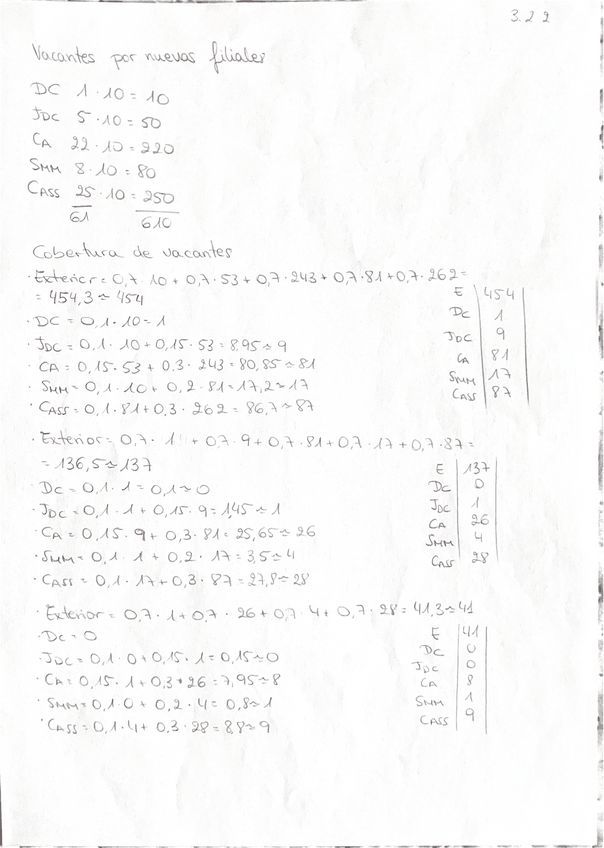 3.2 2
Vacantes por nuevas filiales
DC 1 · 10 = 10
JDC 5 · 10 = 50
CA 22 · 10 = 220
SMM 8 · 10 = 80
CASS 25 · 10 = 250
61 610
Cobertura de vacantes
· Exterior = 0,7 · 10 + 0,7 · 53 + 0,7 · 243 + 0,7 · 81 + 0,7 · 262 =
= 454,3 ≃ 454
· DC = 0,1 · 10 = 1
· JDC = 0,1 · 10 + 0,15 · 53 = 8,95 ≃ 9
· CA = 0,15 · 53 + 0,3 · 243 = 80,85 ≃ 81
· SMM = 0,1 · 10 + 0,2 · 81 = 17,2 ≃ 17
· CASS = 0,1 · 81 + 0,3 · 262 = 86,7 ≃ 87
E 454
DC 1
JDC 9
CA 81
SMM 17
CASS 87
· Exterior = 0,7 · 1 + 0,7 · 9 + 0,7 · 81 + 0,7 · 17 + 0,7 · 87 =
= 136,5 ≃ 137
· DC = 0,1 · 1 = 0,1 ≃ 0
· JDC = 0,1 · 1 + 0,15 · 9 = 1,45 ≃ 1
· CA = 0,15 · 9 + 0,3 · 81 = 25,65 ≃ 26
· SMM = 0,1 · 1 + 0,2 · 17 = 3,5 ≃ 4
· CASS = 0,1 · 17 + 0,3 · 87 = 27,8 ≃ 28
E 137
DC 0
JDC 1
CA 26
SMM 4
CASS 28
· Exterior = 0,7 · 1 + 0,7 · 26 + 0,7 · 4 + 0,7 · 28 = 41,3 ≃ 41
· DC = 0
· JDC = 0,1 · 0 + 0,15 · 1 = 0,15 ≃ 0
· CA = 0,15 · 1 + 0,3 · 26 = 7,95 ≃ 8
· SMM = 0,1 · 0 + 0,2 · 4 = 0,8 ≃ 1
· CASS = 0,1 · 4 + 0,3 · 28 = 8,8 ≃ 9
E 41
DC 0
JDC 0
CA 8
SMM 1
CASS 9